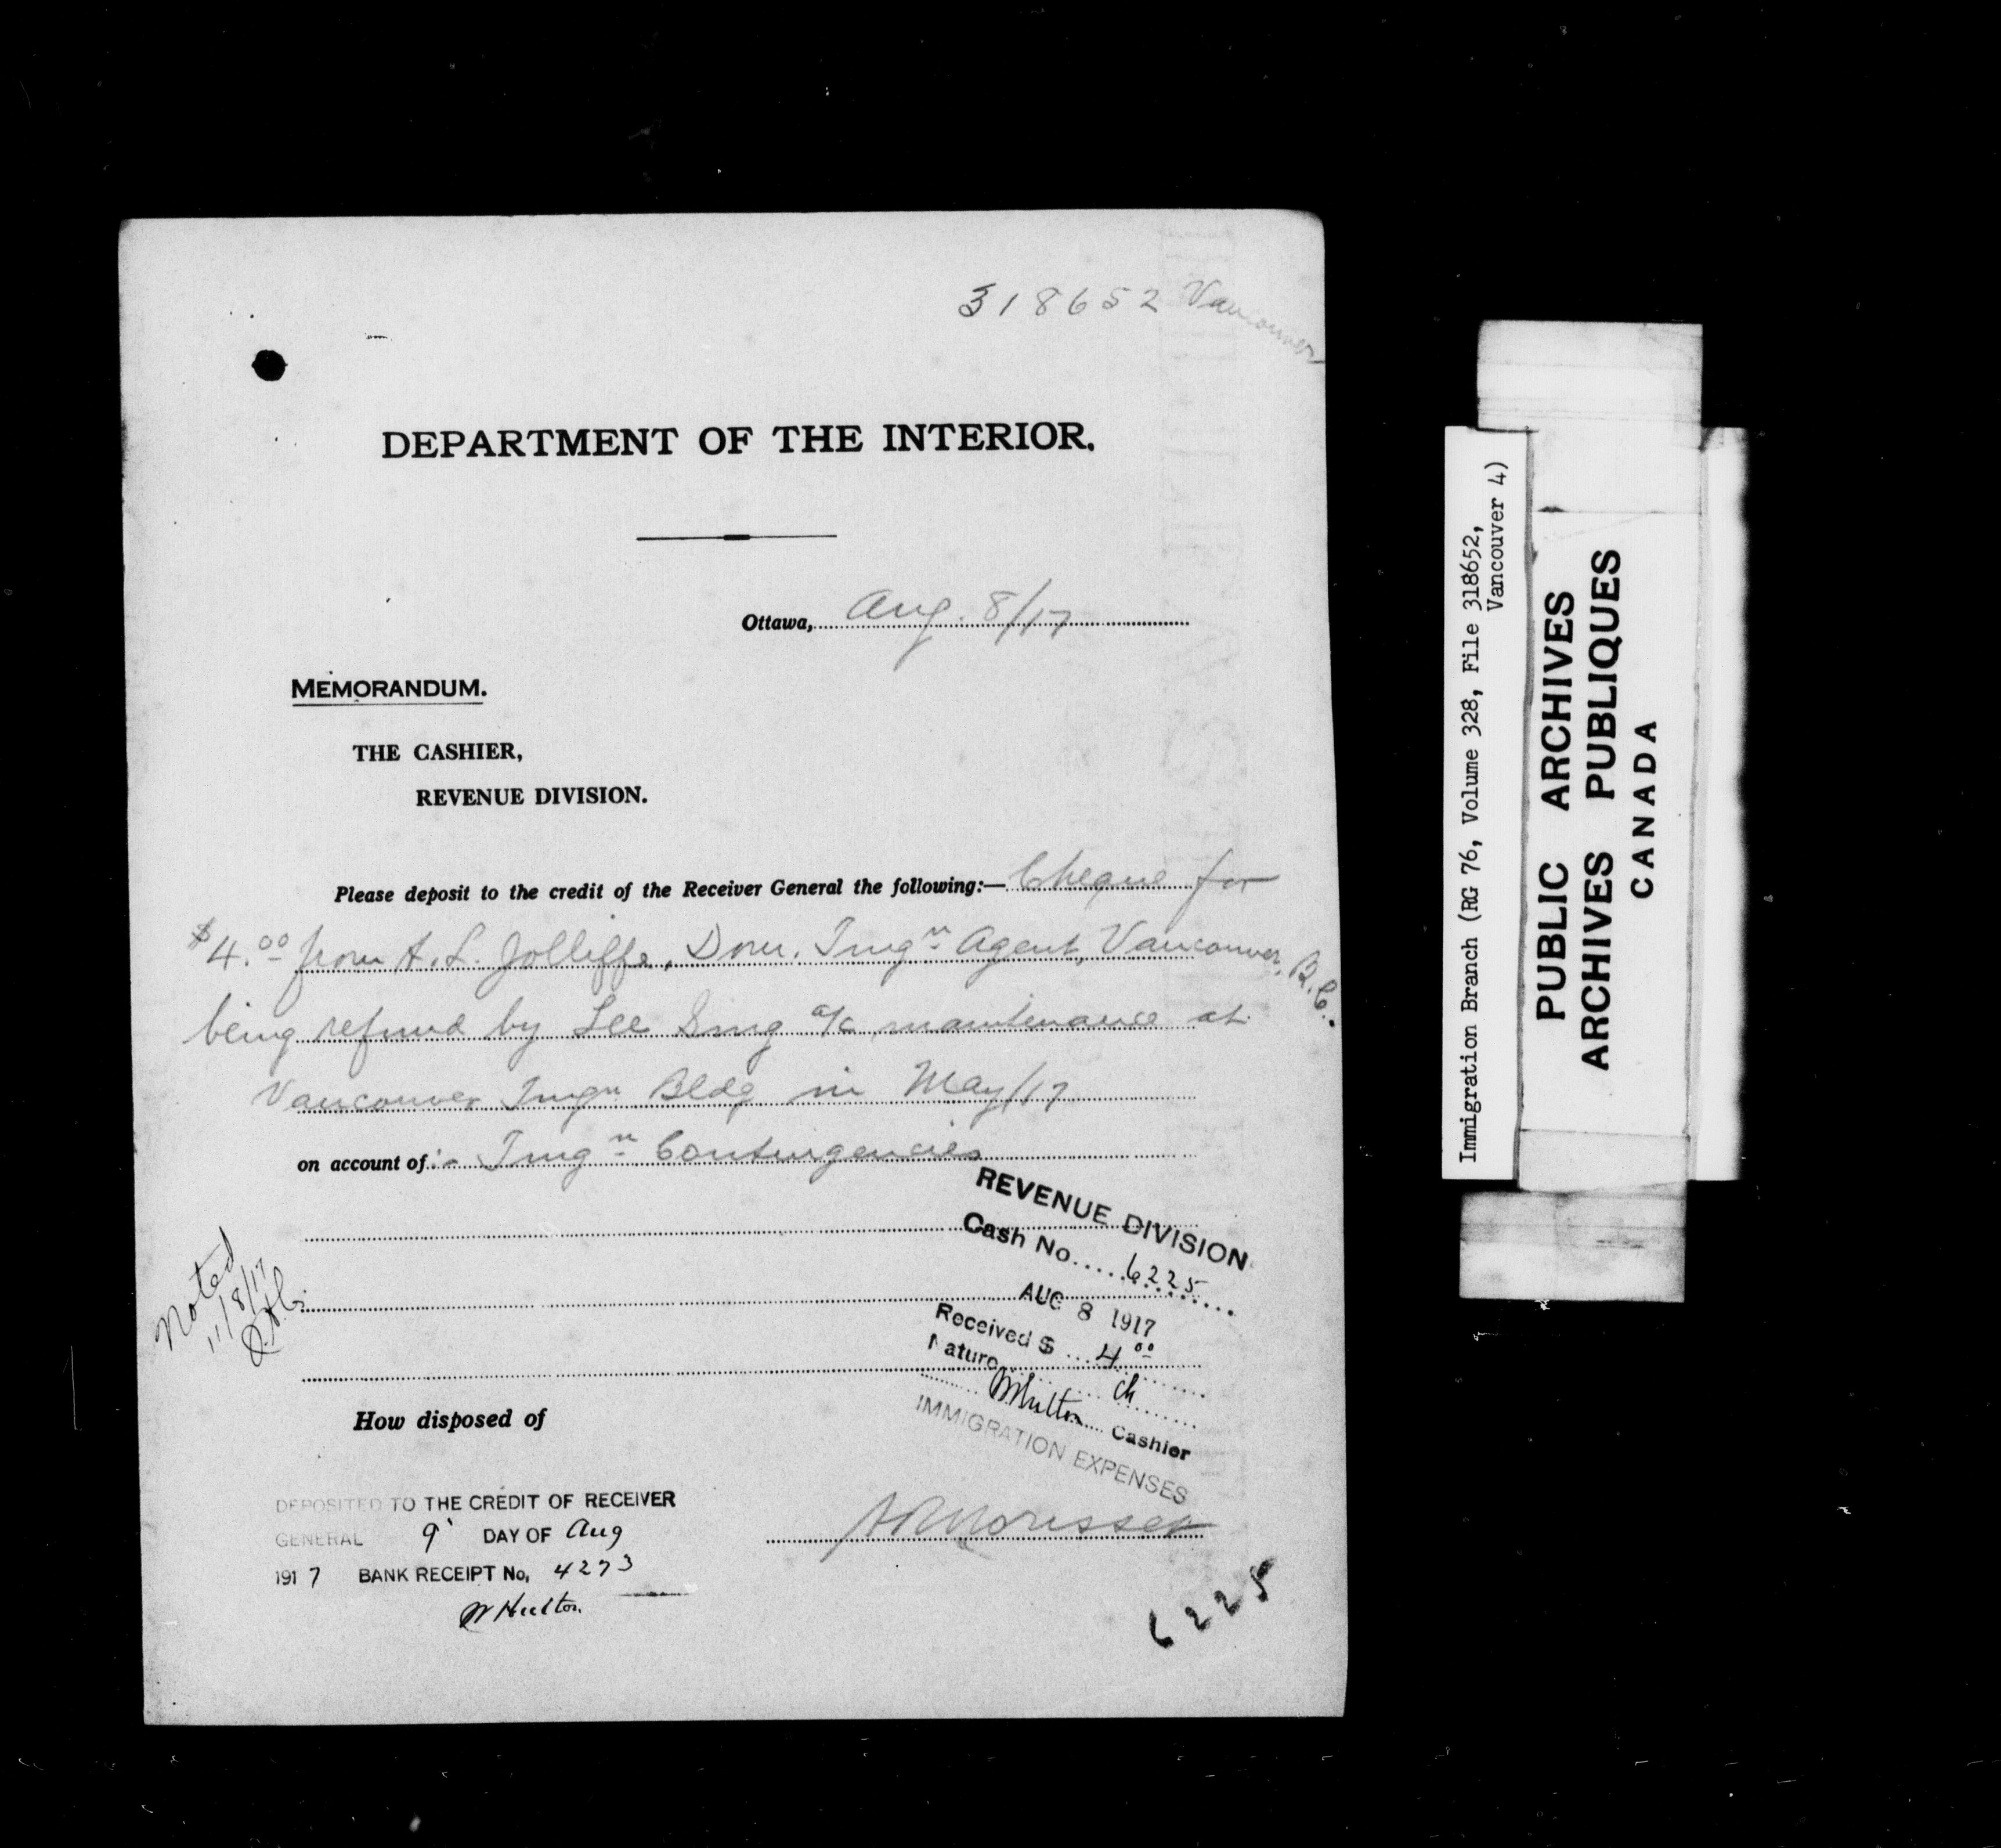 318652 Vancouver
DEPARTMENT OF THE INTERIOR.
Ottawa, Aug. 8/17
MEMORANDUM.
THE CASHIER,
REVENUE DIVISION.
Please deposit to the credit of the Receiver General the following:— Cheque for
$4.00 from A. L. Jolliffe, Dom. Imgn Agent, Vancouver, B.C.
being refund by Lee Sing a/c maintenance at
Vancouver Imgn Bldg in May/17
on account of:- Imgn Contingencies
REVENUE DIVISION
Cash No. 6225
AUG 8 1917
Received $ 4 00
Nature ch
WHulton Cashier
IMMIGRATION EXPENSES
Noted
11/8/17
How disposed of
DEPOSITED TO THE CREDIT OF RECEIVER
GENERAL 9 DAY OF Aug
1917 BANK RECEIPT No. 4273
W Hulton
Morisset
6225
Immigration Branch (RG 76, Volume 328, File 318652,
Vancouver 4)
PUBLIC ARCHIVES
ARCHIVES PUBLIQUES
CANADA